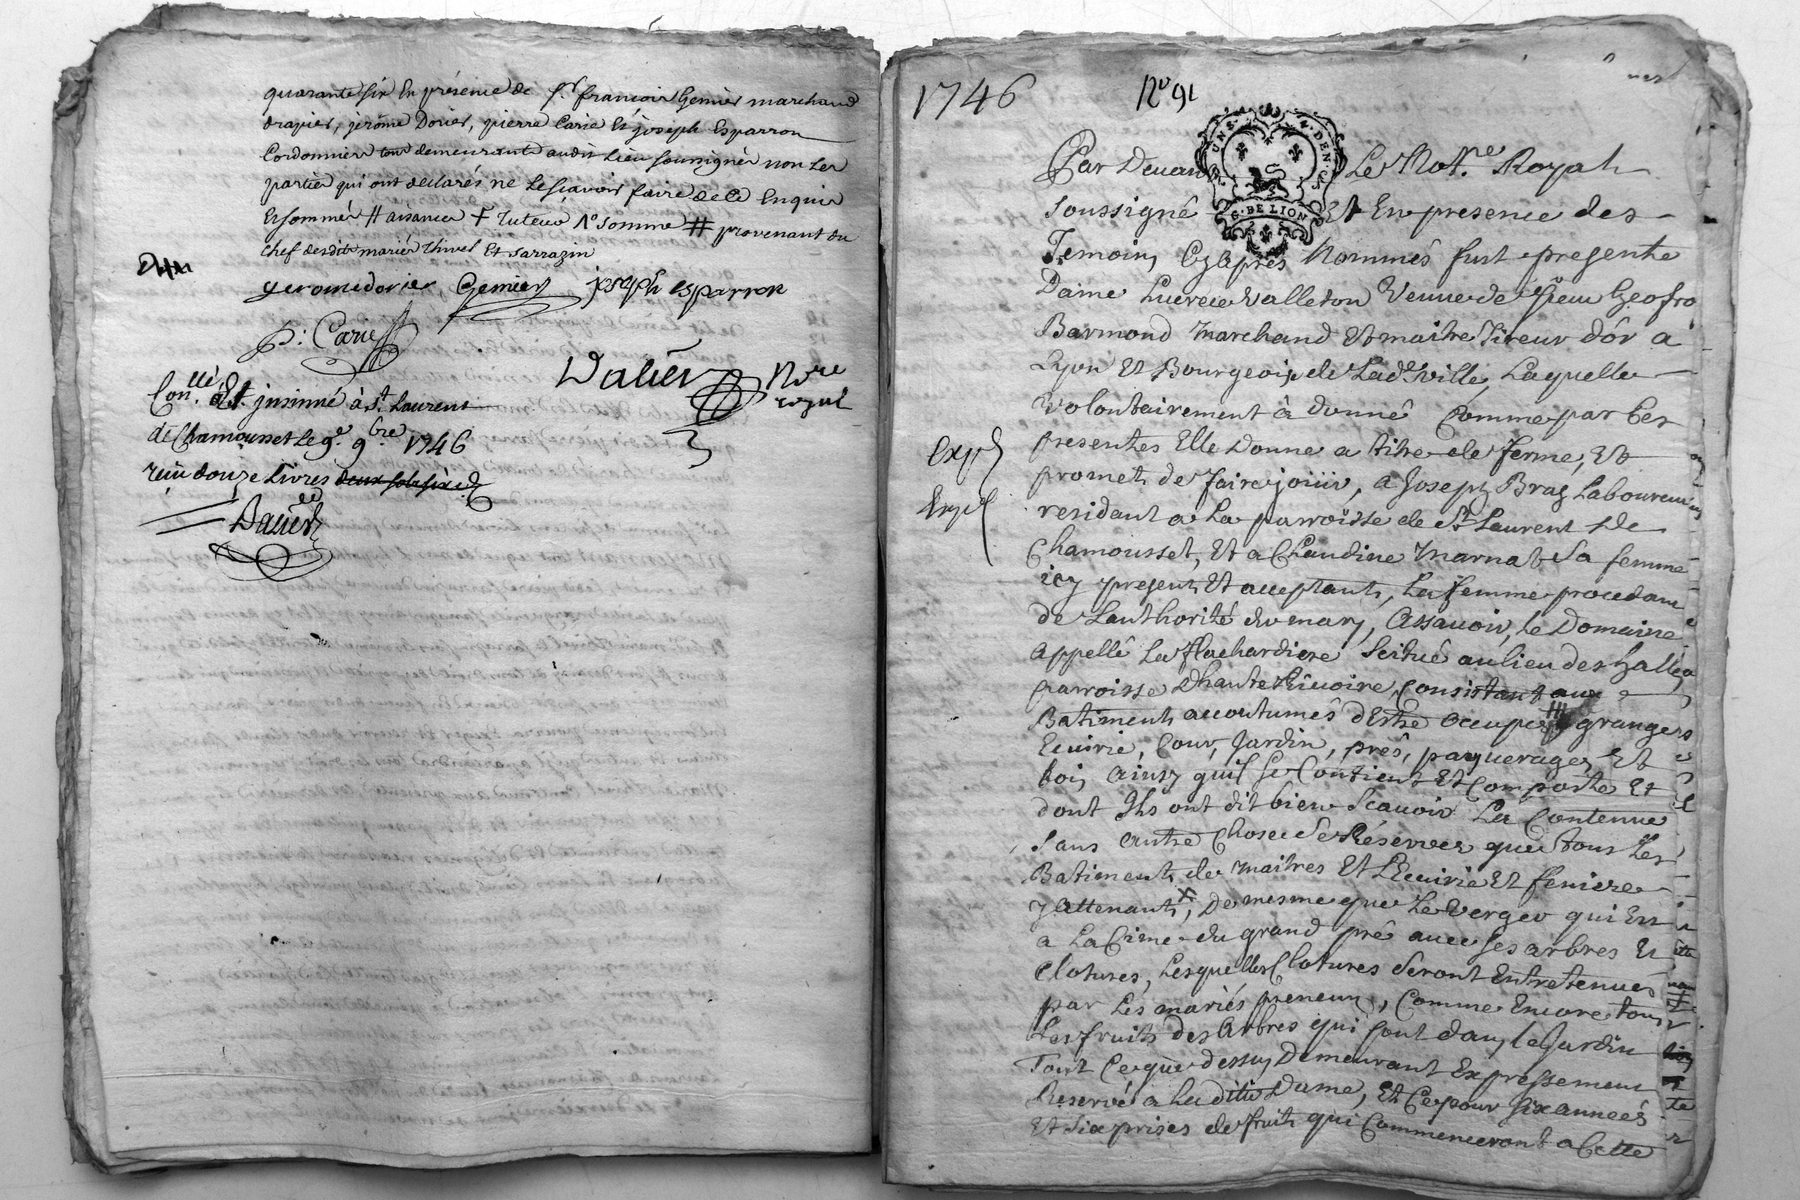 quarante six En présence de Sr. françois Gemier marchand
drapier, jerôme Dorier, pierre Carie Et joseph Esparron
Cordonnier tous demeurants audit Lieu soussignés non Les
parties qui ont déclarés ne Le scavoir faire de ce Enquis
Et sommés // aisances + Tuteur 1º somme # provenant du
chef desdits mariés Thivel Et sarrazin
geromedorier Gemier joseph esparron
p: Carie
Dalier Nore
royal
Con.llé Et jnsinué à St. Laurent
de Chamousset Le 9e. 9bre 1746
reçu douze Livres deux sols six d
Dalier
1746
No 91
Par Devant Le Nottre. Royal
soussigné Et En presence des
G. DE LION
Temoins Cy apres Nommés fut presente
Dame Lucrece Valleton Veuve de sieur Geofro
Barmond Marchand Et maitre Tireur d'ôr a
Lyon Et Bourgeois de Lade. ville, Laquelle
volontairement à donné Comme par Ces
presentes Elle Donne a titre de ferme, Et
promet de faire joüir, a Joseph Braz Laboureur
residant a La parroisse de St Laurent De
Chamousset, Et a Claudine Marnat Sa femme
icy presents Et acceptants, La femme procedant
de Lauthorité du mary, Assavoir, Le Domaine
appellé La flachardiere Scitué au lieu des halles
parroisse D'haute Rivoire, Consistant aux
Batiments accoutumés d'Estre occupés grangers
Ecuirie, Cour, Jardin, prés, paquerages Et
bois ainsy quil se Contient Et Comporte Et
dont Ils ont dit bien Scavoir La Contenue
sans autre Chose se Réserver que tous Les
Batiments de maitres Et L'Ecuirie Et feniere
y attenants, De mesme que Le verger qui Est
a La Cime du grand pré avec ses arbres Et
Clotures, Lesquelles Clotures Seront Entretenues
par Les mariés preneurs, Comme Encore tous
Les fruits des Arbres qui sont dans le Jardin
Tout Ce que dessus Demeurant Expressement
Reservé a Laditte Dame, Et Ce pour six années
Et Six prises de fruits qui Commenceront a Cette